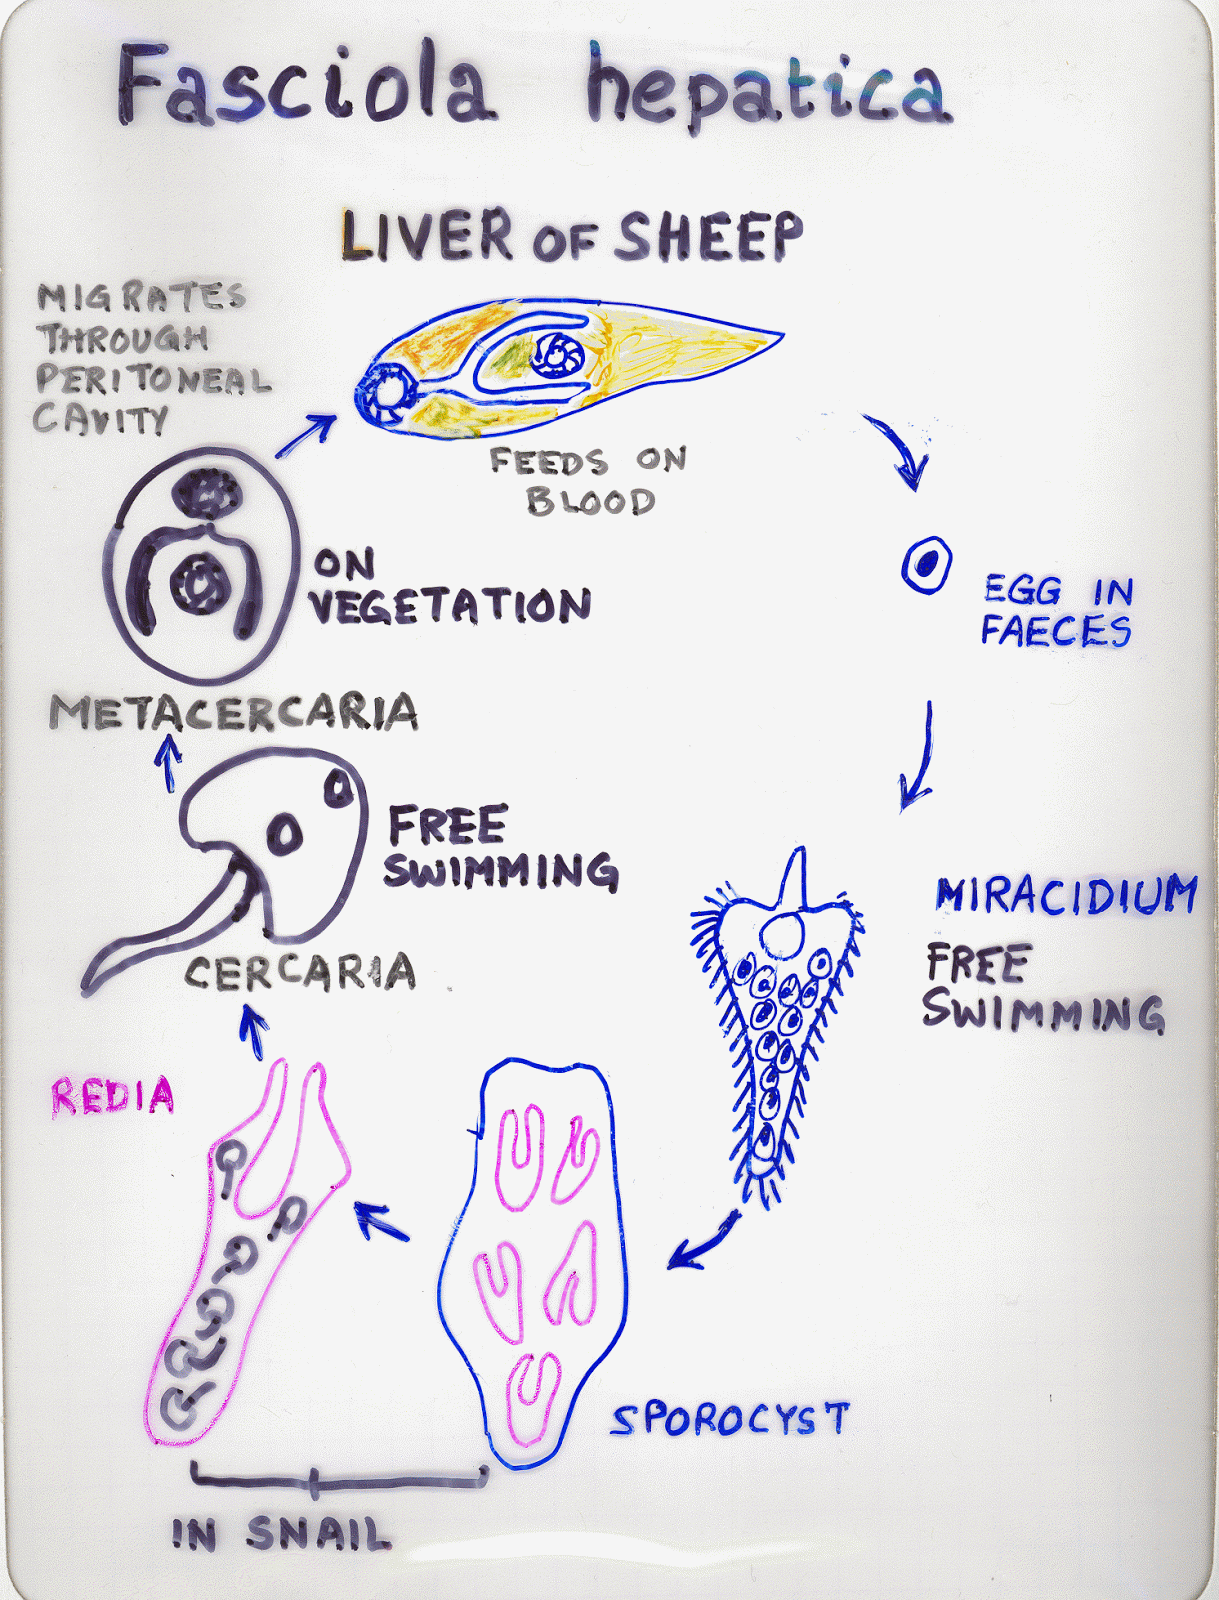 Fasciola hepatica
LIVER OF SHEEP
MIGRATES
THROUGH
PERITONEAL
CAVITY
FEEDS ON
BLOOD
EGG IN
FAECES
ON
VEGETATION
METACERCARIA
FREE
SWIMMING
CERCARIA
MIRACIDIUM
FREE
SWIMMING
REDIA
SPOROCYST
IN SNAIL